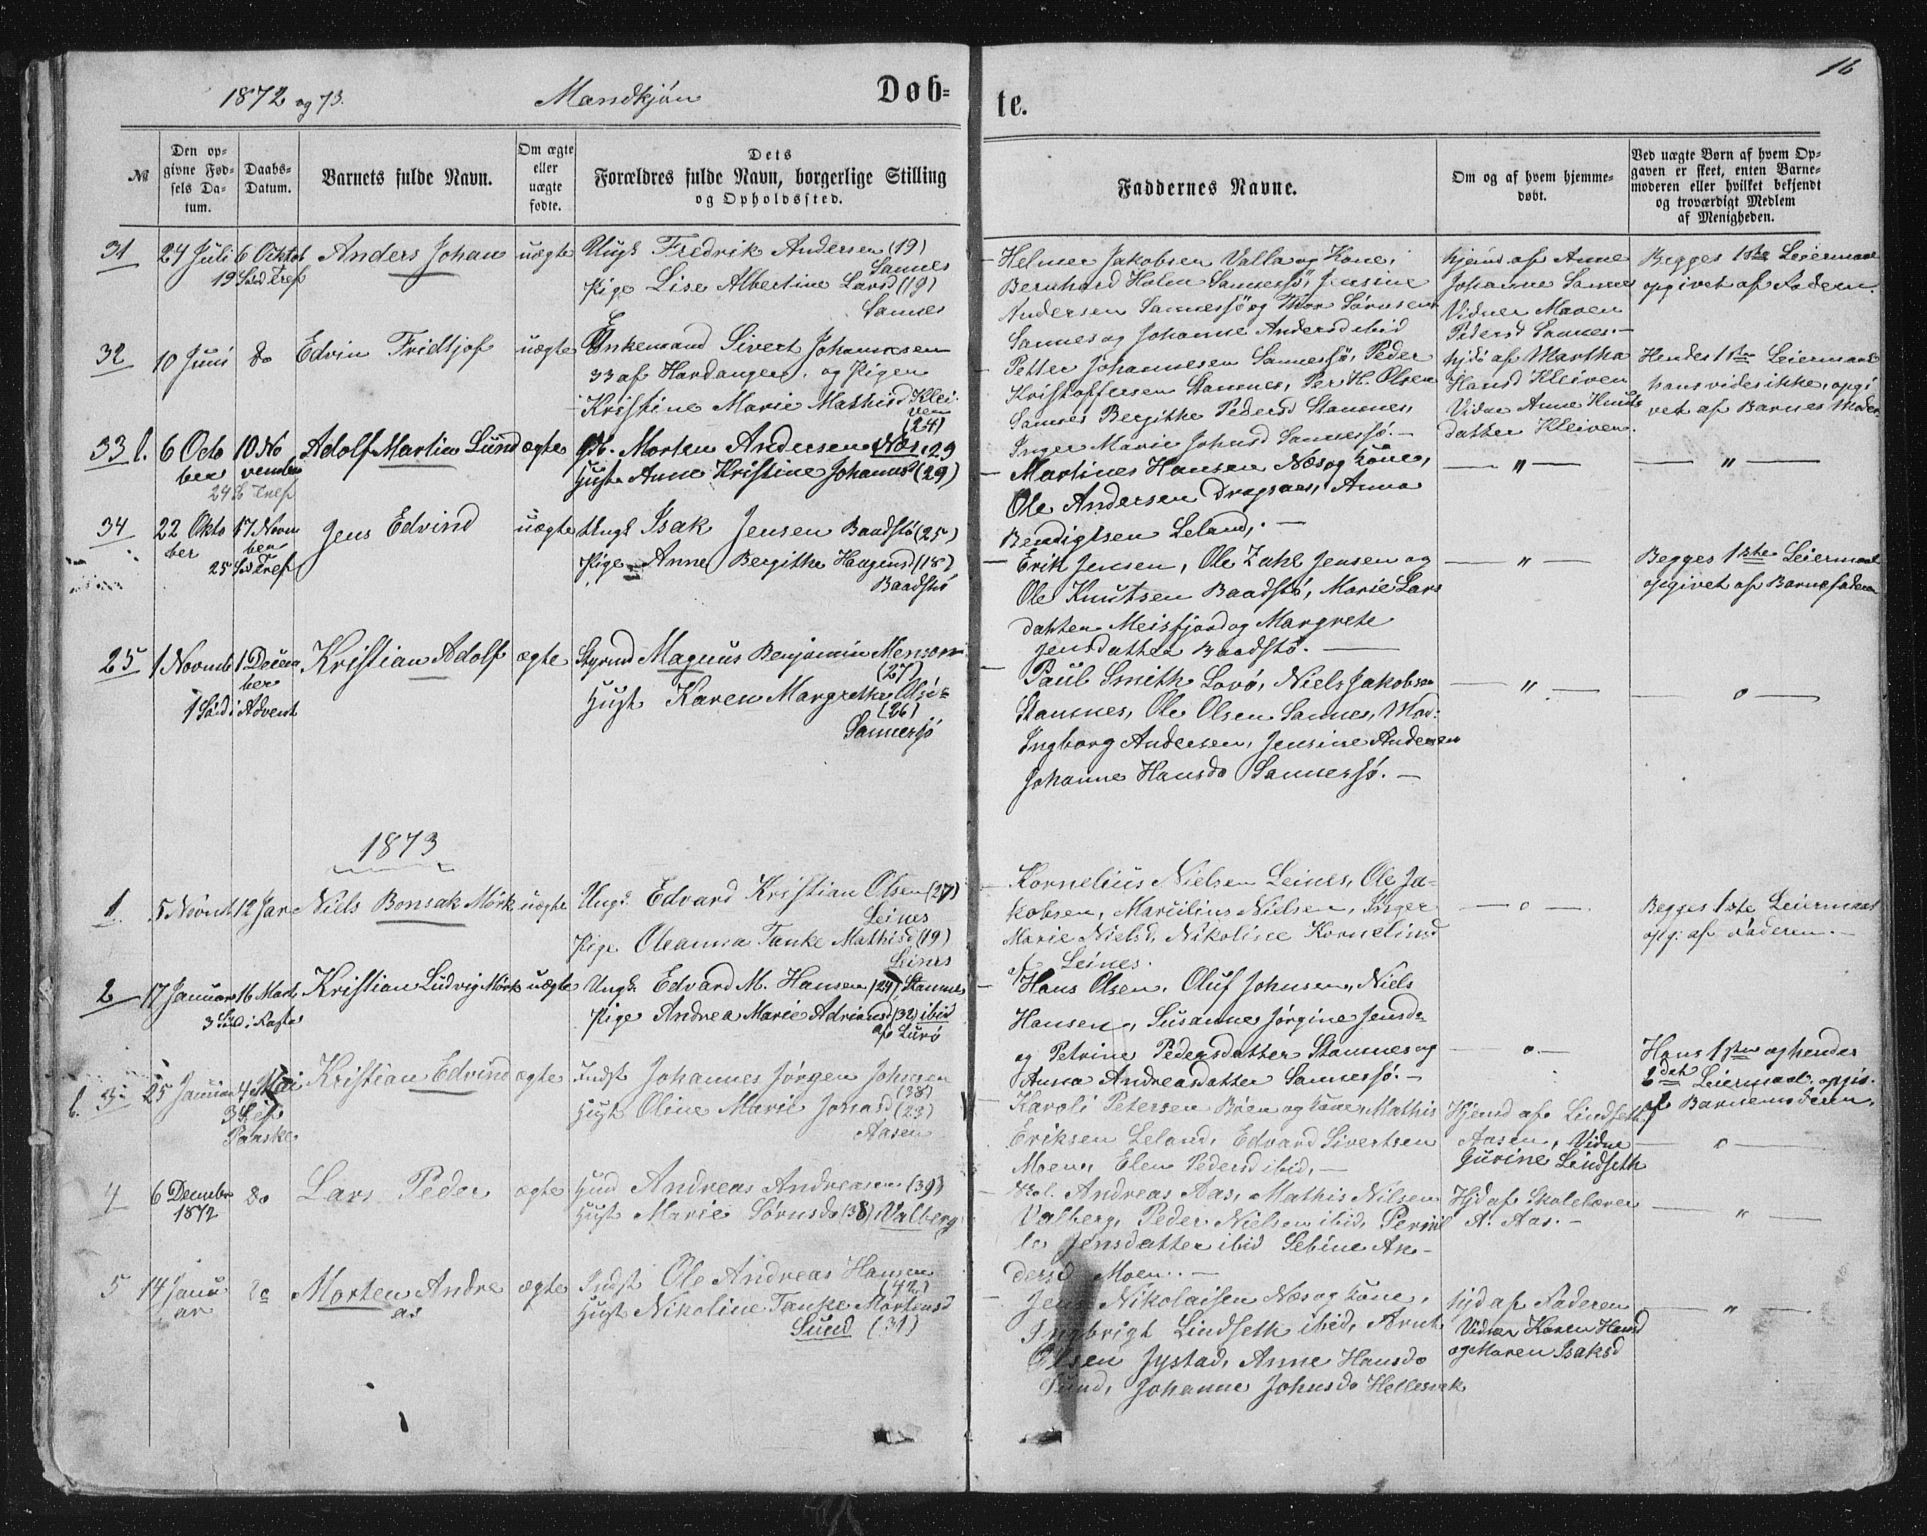 16
1872 og 73.
Mandkjön
Døb-
te.
№
Den op-
givne Fød-
sels Da-
tum.
Daabs-
Datum.
Barnets fulde Navn.
Om ægte
eller
uægte
fødte.
Dets
Forældres fulde Navn, borgerlige Stilling
og Opholdssted.
Faddernes Navne.
Om og af hvem hjemme-
døbt.
Ved uægte Børn af hvem Op-
gaven er skeet, enten Barne-
moderen eller hvilket bekjendt
og troværdigt Medlem
af Menigheden.
31
24 Juli
6 Oktob
19 Sønd Tref
Anders Johan
uægte
Ungk Fredrik Andersen (19)
Sannes
Pige Lise Albertine Larsd (19)
Sannes
Helmer Jakobsen Valla og Kone,
Bernhard Holm Sannessjö, Jensine
Andersen Sannessjö og Thor Sörnsen
Sannes og Johanne Andersd ibid
hjemd af Anne
Johanne Sannes
Vidner Maren
Pedersd Sannes.
Begges 1ste Leiermaal
opgivet af Faderen.
32
10 Juni
do
Edvin Fridtjof
uægte
Enkemand Sivert Johannesen
33 af Hardanger. og Pigen
Kristine Marie Mathisd Klei
ven
(24)
Petter Johannesen Sannessjö, Peder
Kristoffersen Stamnes, Per H. Olsen
Sannes Bergithe Pedersd Stamnes,
Inger Marie Johnsd Sannessjö.
hjdö af Martha
Hansd Kleiven
Vidne Anne Knuts
datter Kleiven.
Hendes 1ste Leiermaal
hans vides ikke, opgi
vet af Barnes Moder
33
6 Octo
ber
10 No
vember
24 S Tref
Adolf Martin Lund
ægte
Gb. Morten Andersen Næs, 29
Hust Anne Kristine Johannsd (29)
Martines Hansen Næs og Kone,
Ole Andersen Dragsnes, Anna
Bendigtsen Leland.
"
"
34
22 Okto
ber
17 Novm
ber
25 Sd Tref
Jens Edvind
uægte
Ungk Isak Jensen Baadstö (25)
Pige Anne Bergithe Haagensd (18)
Baadstö
Erik Jensen, Ole Zahl Jensen og
Ole Knutsen Baadstö, Marie Lars
datter Meisfjord og Margrete
Jensdatter Baadstö.
"
Begges 1ste Leiermaal
opgivet af Barnefaderen
25
1 Novmb
1. Decem
ber
1 Sød i Advent
Kristian Adolf
ægte
Styrmd Magnus Benjamin Menson
(27)
Hust Karen Margrethe
(26)
Sannessjö
Paul Smith Lovö, Niels Jakobsen
Stamnes, Ole Olsen Sannes, Mad:
Ingborg Andersen, Jensine Andersen
Johanne Hansda Sannessjö.
"
o
1873
1
5 Novmb
12 Jan
Niels Bonsak Mörk
uægte
Ungk. Edvard Kristian Olsen (27)
Leines
Pige Oleanna Tanke Mathisd (19)
Leines
Kornelius Nielsen Leines, Ole Ja-
kobsen, Marcilius Nielsen, Inger
Marie Nielsd, Nikoline Korneliusd
Leines.
o
Begges 1ste Leiermaal
opg. af Faderen.
2
17 Januar
16 Marts
3 Sød i Faste
Kristian Ludvig Mörk
uægte
Ungk. Edvard M. Hansen (24) Stamnes
Pige Andrea Marie Adriansd (32) ibid
af Lurö
Hans Olsen, Oluf Johnsen, Niels
Hansen, Susanne Jörgine Jensda
og Petrine Pedersdatter Stamnes og
Anna Andreasdatter Sannessjö.
o
Hans 1ste og hendes
2det Leiermaal. opgiv.
af Barnemoderen.
3
25 Januar
4 Mai
3 S ef
Paaske
Kristian Edvind
ægte
Indst Johannes Jörgen Johnsen
(38)
Hust Oline Marie Jonasd (23)
Aasen
Karoli Petersen Böen og Kone, Mathis
Eriksen Leland, Edvard Sivertsen
Moen, Elen Pedersd ibid,
Hjemd af Lindseth
Aasen, Vidne
Gurine Lindseth
"
4
6 Decmbr
1872
do
Lars Peder
ægte
Hmd Andreas Andreasen (39)
Hust Marie Sörnsda (38) Valberg
Skol. Andreas Aas, Mathis Nilsen
Valberg, Peder Nielsen ibid, Pernil
le Jensdatter ibid Sebine An-
dersd Moen.
Hjd af Skolelærer
A. Aas.
"
5
14 Janu
ar
do
Morten Andre
as
ægte
Indst Ole Andreas Hansen
(42)
Hust Nikoline Tanke Mortensd
Sund (31)
Jens Nikolaisen Næs og Kone,
Ingbrigt Lindseth ibid, Arnt
Olsen Jystad, Anne Hansda
Sund, Johanne Johnsda Hellesvik
Hjd af Faderen
Vidner Karen Hansd
og Maren Isaksd
"